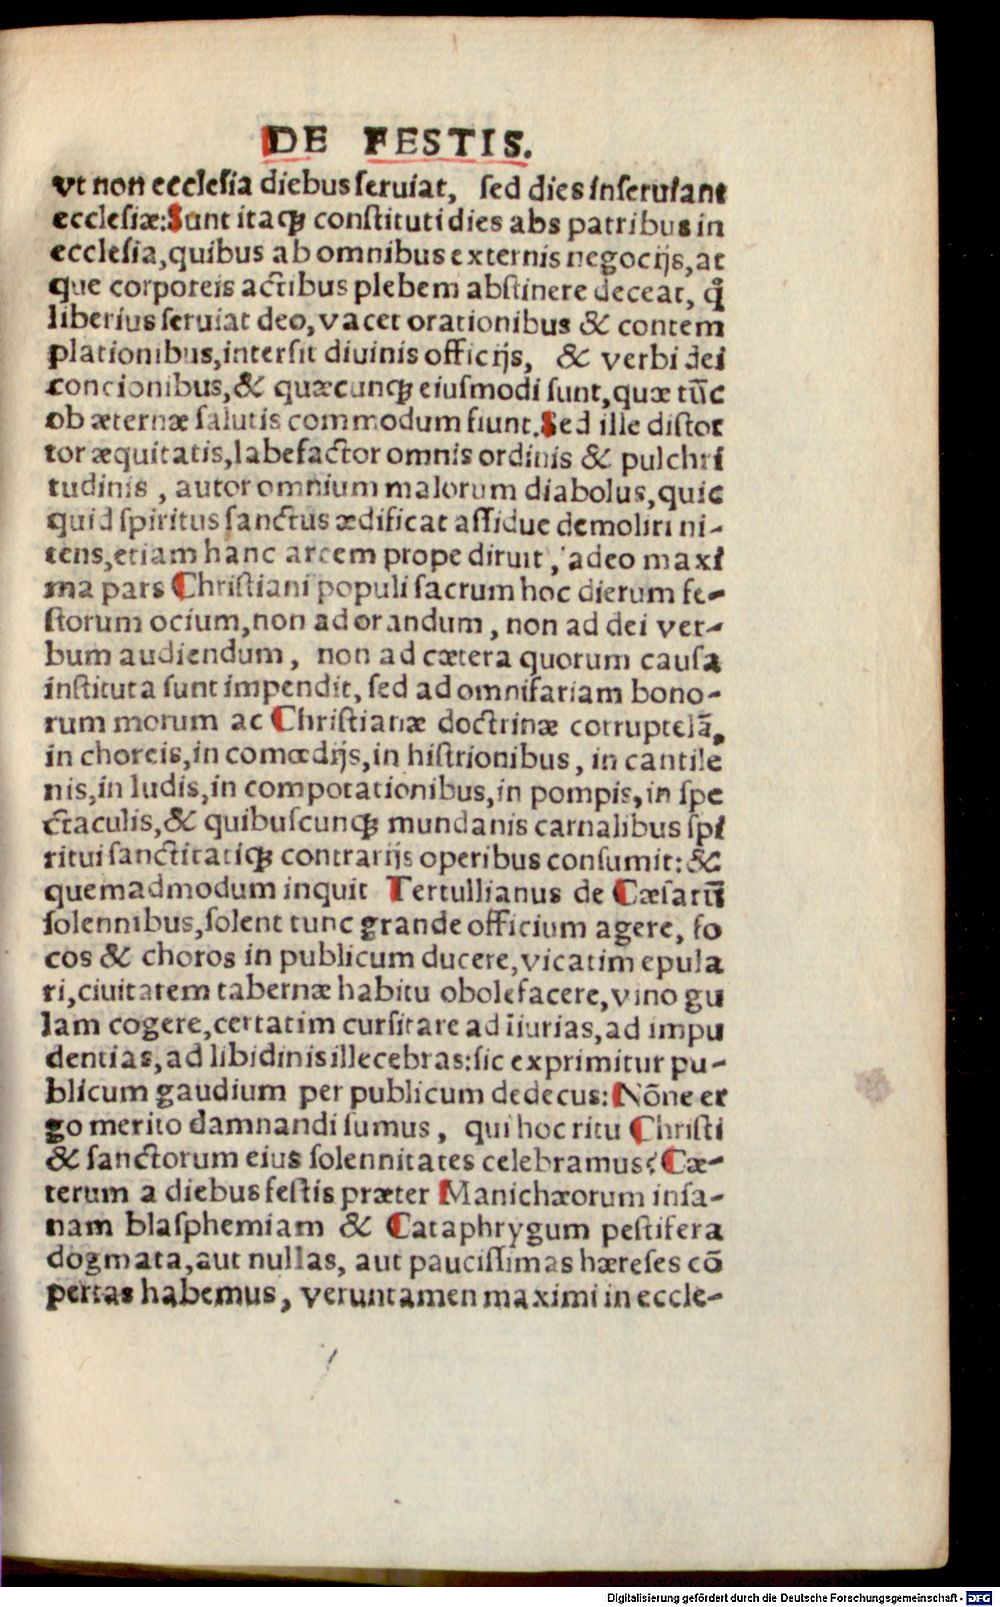 DE FESTIS.
vt non ecclesia diebus seruiat, sed dies inseruiant
ecclesiæ: Sunt itaqꝫ constituti dies abs patribus in
ecclesia, quibus ab omnibus externis negocijs, at
que corporeis actibus plebem abstinere deceat, ꝙ̈
liberius seruiat deo, vacet orationibus & contem
plationibus, intersit diuinis officijs, & verbi dei
concionibus, & quæcunqꝫ eiusmodi sunt, quæ tūc
ob æternæ salutis commodum fiunt. Sed ille distor
tor æquitatis, labefactor omnis ordinis & pulchri
tudinis, autor omnium malorum diabolus, quic
quid spiritus sanctus ædificat assidue demoliri ni-
tens, etiam hanc arcem prope diruit, adeo maxi
ma pars Christiani populi sacrum hoc dierum fe-
storum ocium, non ad orandum, non ad dei ver-
bum audiendum, non ad cætera quorum causa
instituta sunt impendit, sed ad omnifariam bono-
rum morum ac Christianæ doctrinæ corruptelā,
in choreis, in comœdijs, in histrionibus, in cantile
nis, in ludis, in compotationibus, in pompis, in spe
ctaculis, & quibuscunqꝫ mundanis carnalibus spi
ritui sanctitatiqꝫ contrarijs operibus consumit: &
quemadmodum inquit Tertullianus de Cæsarū
solennibus, solent tunc grande officium agere, fo
cos & choros in publicum ducere, vicatim epula
ri, ciuitatem tabernæ habitu obolefacere, vino gu
lam cogere, certatim cursitare ad iīurias, ad impu
dentias, ad libidinis illecebras: sic exprimitur pu-
blicum gaudium per publicum dedecus: Nōne er
go merito damnandi sumus, qui hoc ritu Christi
& sanctorum eius solennitates celebramus? Cæ-
terum a diebus festis præter Manichæorum insa-
nam blasphemiam & Cataphrygum pestifera
dogmata, aut nullas, aut paucissimas hæreses cō
pertas habemus, veruntamen maximi in eccle-
Digitalisierung gefördert durch die Deutsche Forschungsgemeinschaft - DFG